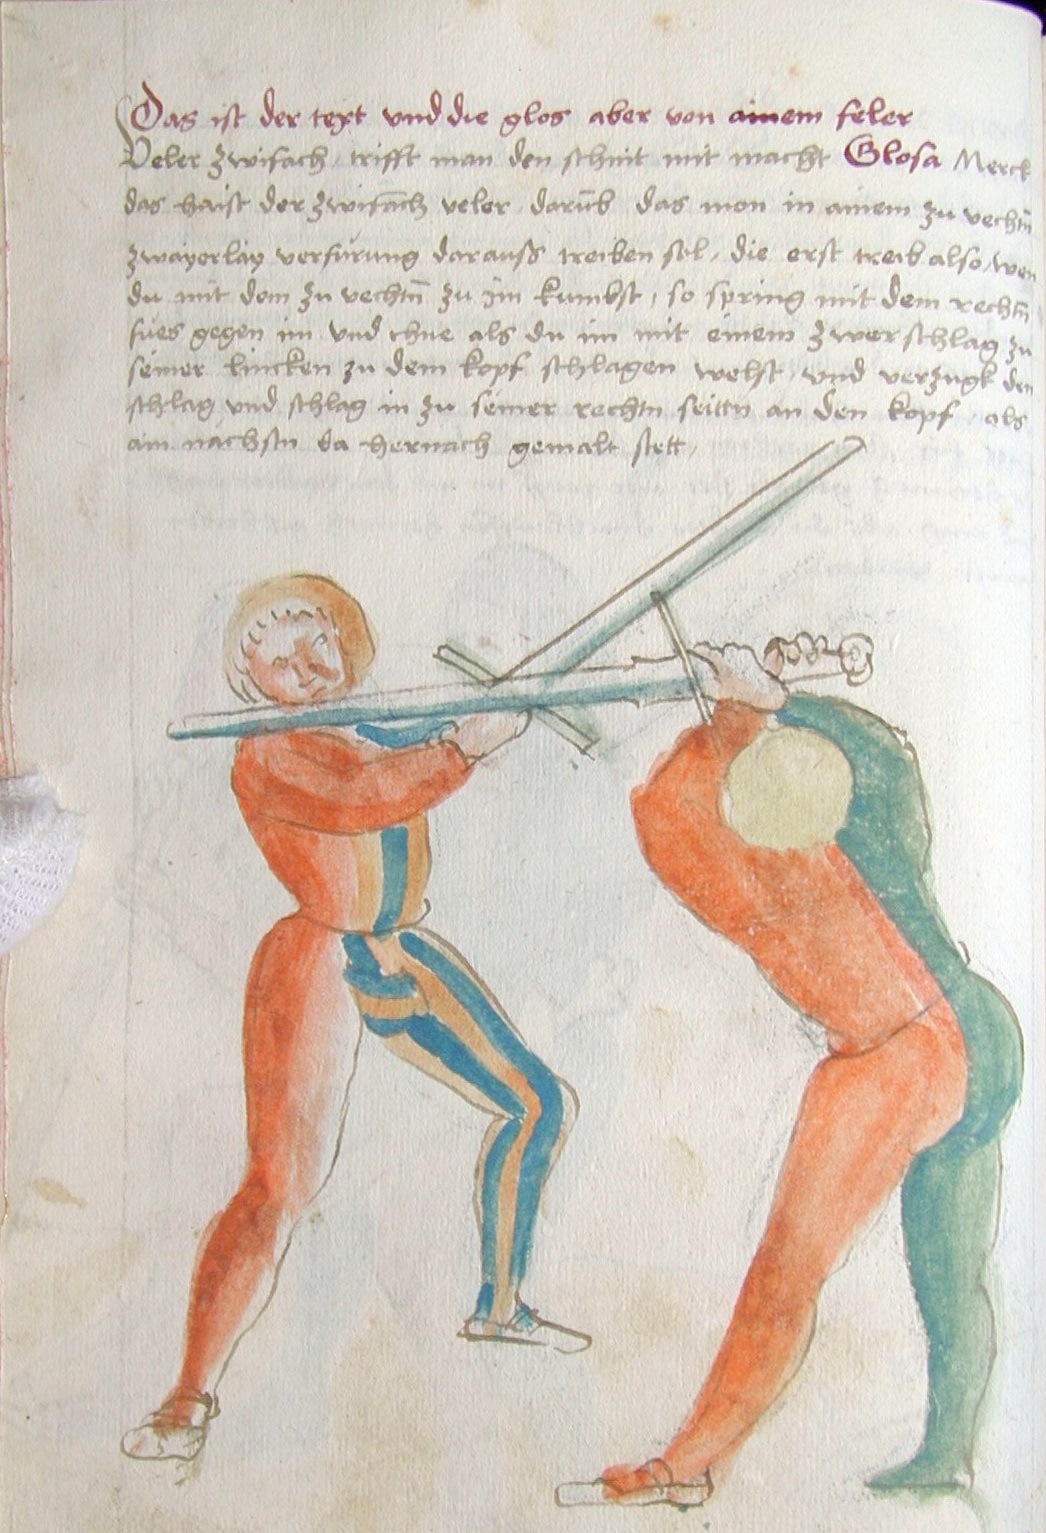 Das ist der text vnd die glos aber von ainem feler
Veler zwifach trifft man den schnit mit macht Glosa Merck
das haist der zwifach veler darūb das mon in ainem zu vechtn̄
zwayerlay verfurung darauss treiben sol, die erst treib also, wen
du mit dem zu vechtn̄ zu im kumbst, so spring mit dem rechtn̄
fues gegen im vnd thue als du im mit einem zwerschlag zu
seiner lincken zu dem kopf schlagen welst, vnd verzugk den
schlag vnd schlag in zu seiner rechtn seittn an den kopf, als
am nachstn da hernach gemalt stett,